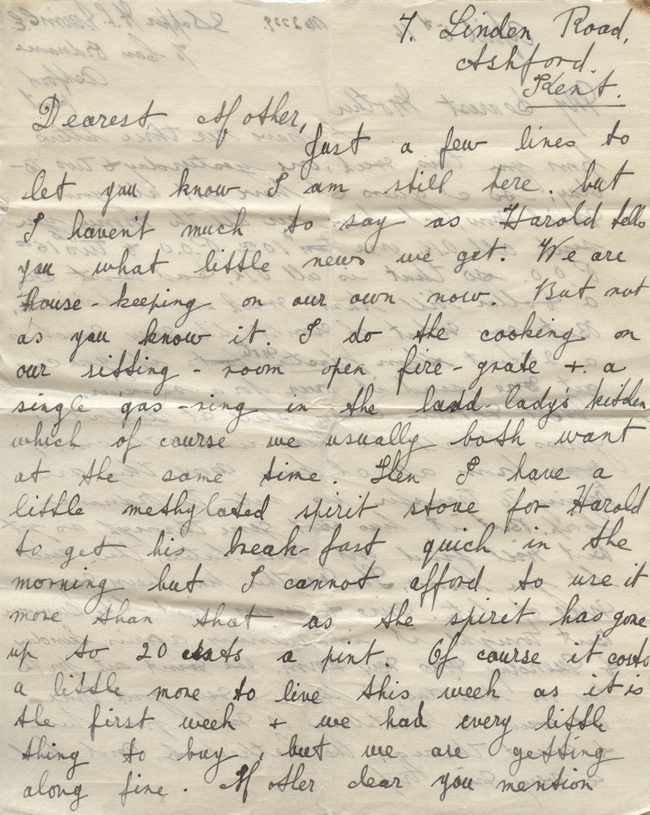 7. Linden Road,
Ashford.
Kent.
Dearest Mother,
Just a few lines to
let you know I am still here. but
I haven't much to say as Harold tells
you what little news we get. We are
house-keeping on our own now. But not
as you know it. I do the cooking on
our sitting-room open fire-grate + a
single gas-ring in the land-lady's kitchen
which of course we usually both want
at the same time. Then I have a
little methylated spirit stove for Harold
to get his break-fast quick in the
morning but I cannot afford to use it
more than that as the spirit has gone
up to 20 cents a pint. Of course it costs
a little more to live this week as it is
the first week + we had every little
thing to buy, but we are getting
along fine. Mother dear you mention